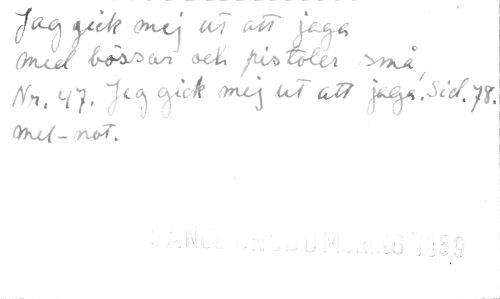 Jag gick mej ut att jaga
med bössor och pistoler små,
Nr. 47. Jag gick mej ut att jaga. Sid. 78.
mel-not.
1959